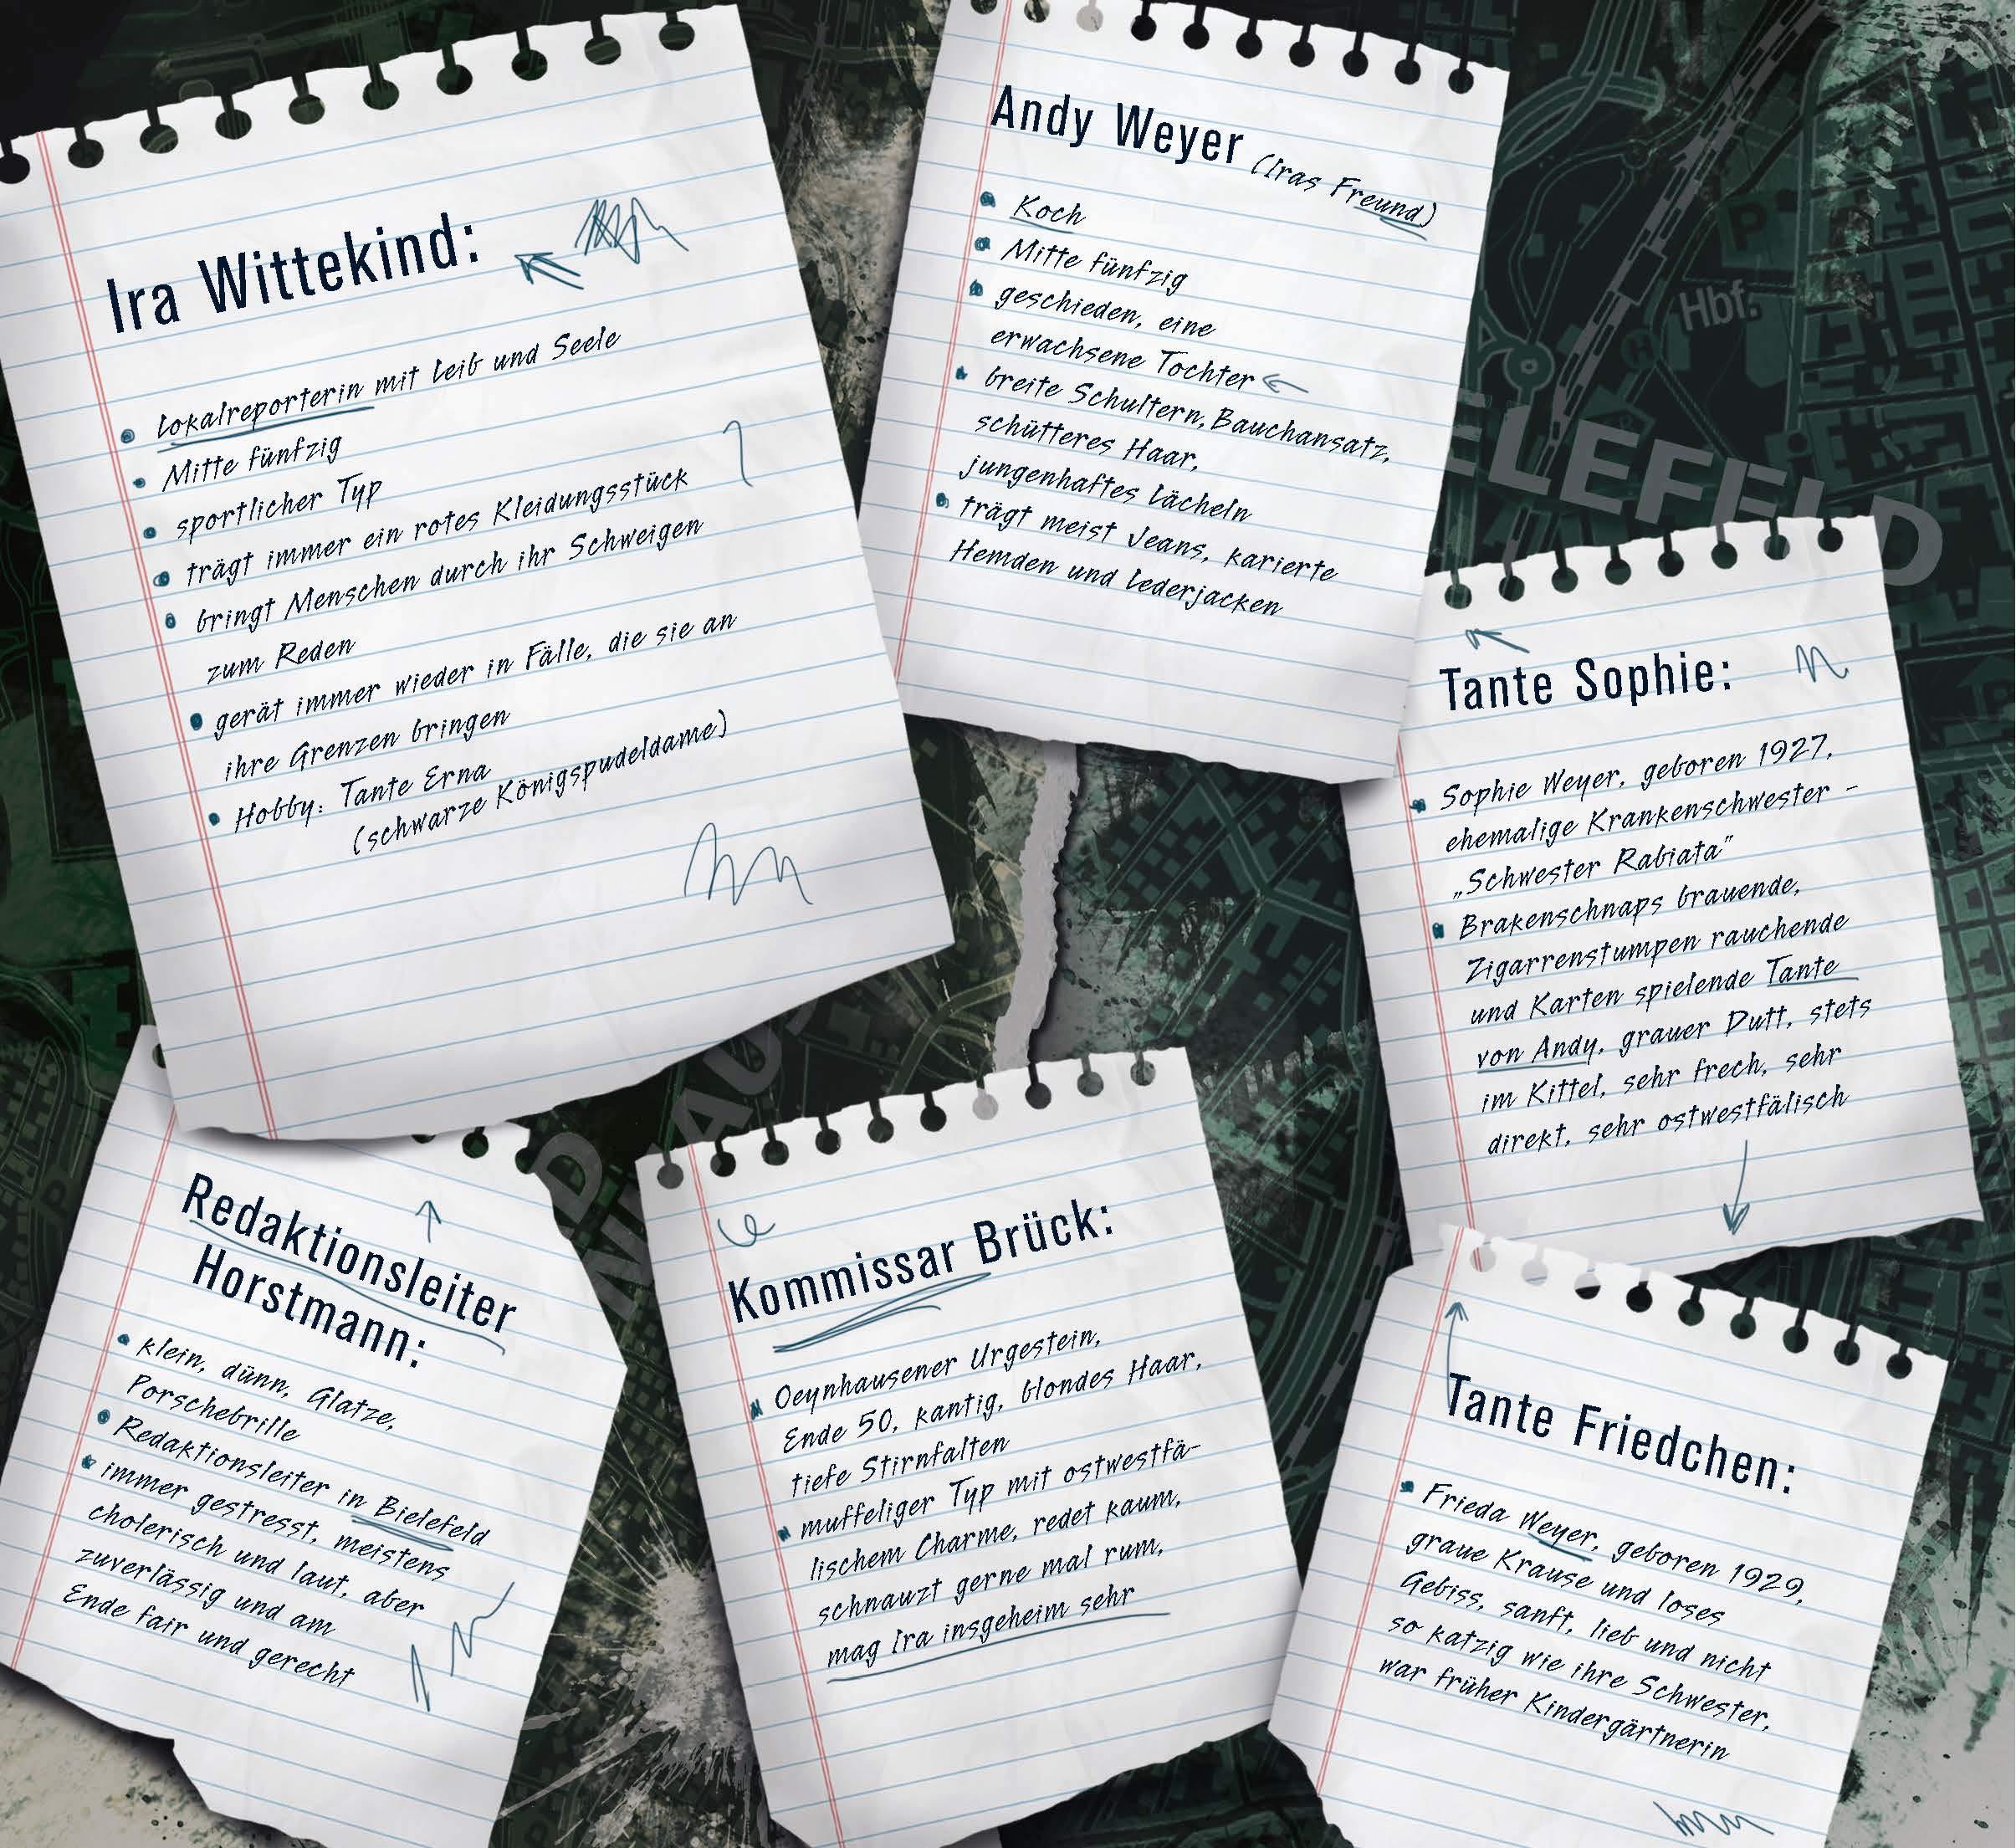 Ira Wittekind:
Lokalreporterin mit Leib und Seele
Mitte fünfzig
sportlicher Typ
trägt immer ein rotes Kleidungsstück
bringt Menschen durch ihr Schweigen
zum Reden
gerät immer wieder in Fälle, die sie an
ihre Grenzen bringen
Hobby: Tante Erna
(schwarze Königspudeldame)
Andy Weyer (Iras Freund)
Koch
Mitte fünfzig
geschieden, eine
erwachsene Tochter
breite Schultern, Bauchansatz,
schütteres Haar,
jungenhaftes Lächeln
trägt meist Jeans, karierte
Hemden und Lederjacken
Hbf.
ELEFELD
Tante Sophie:
Sophie Weyer, geboren 1927,
ehemalige Krankenschwester –
„Schwester Rabiata”
Brakenschnaps brauende,
Zigarrenstumpen rauchende
und Karten spielende Tante
von Andy, grauer Dutt, stets
im Kittel, sehr frech, sehr
direkt, sehr ostwestfälisch
Redaktionsleiter
Horstmann:
klein, dünn, Glatze,
Porschebrille
Redaktionsleiter in Bielefeld
immer gestresst, meistens
cholerisch und laut, aber
zuverlässig und am
Ende fair und gerecht
Kommissar Brück:
Oeynhausener Urgestein,
Ende 50, kantig, blondes Haar,
tiefe Stirnfalten
muffeliger Typ mit ostwestfä-
lischem Charme, redet kaum,
schnauzt gerne mal rum,
mag Ira insgeheim sehr
Tante Friedchen:
Frieda Weyer, geboren 1929,
graue Krause und loses
Gebiss, sanft, lieb und nicht
so katzig wie ihre Schwester,
war früher Kindergärtnerin